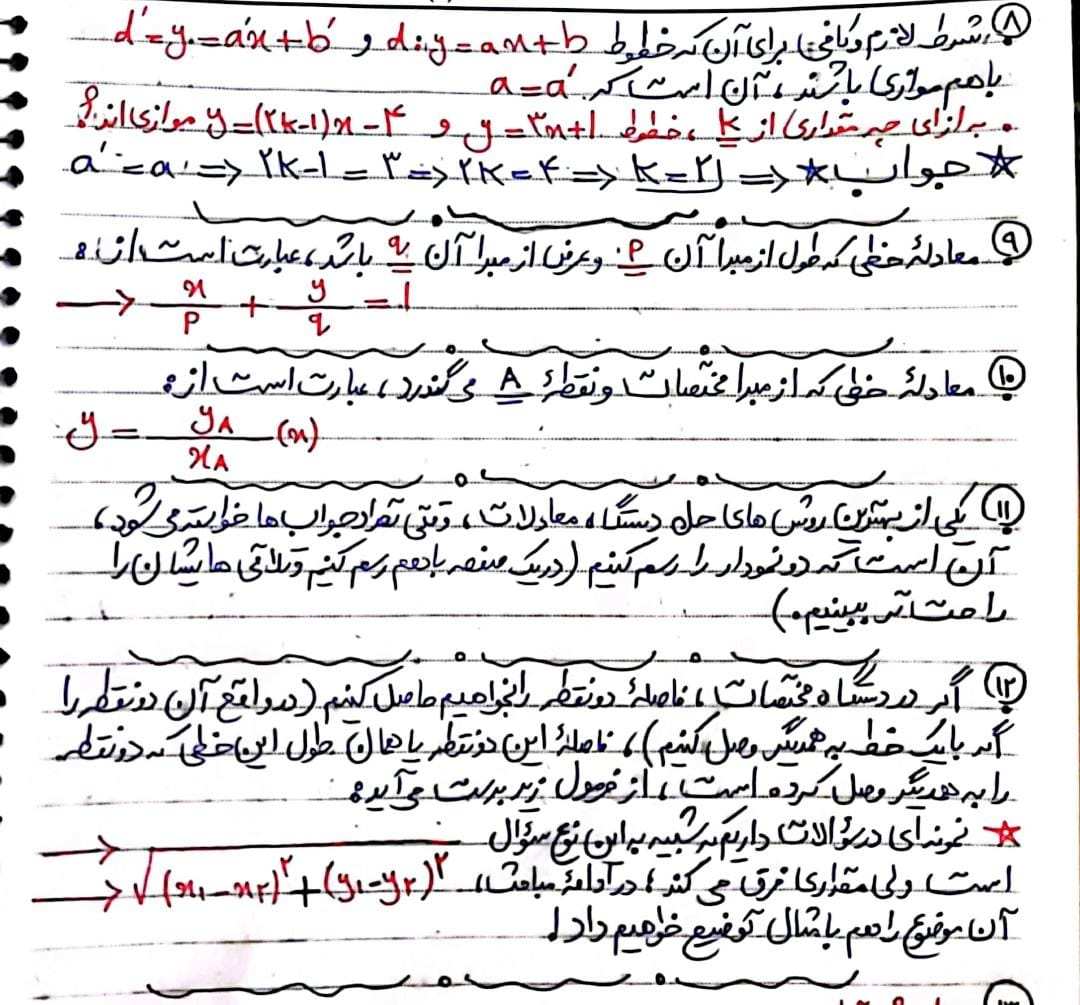 ۸) شرط لازم و کافی، برای آن که خطوط d: y = ax + b و d′ = y = a′x + b′
باهم موازی باشند، آن است که a = a′
• به ازای چه مقداری از k، خطوط y = ۳x + ۱ و y = (۲k-۱)x - ۴ موازی‌اند؟
☆ جواب ☆ => a′ = a => ۲k - ۱ = ۳ => ۲k = ۴ => k = ۲
۹) معادلهٔ خطی که طول از مبدا آن p و عرض از مبدا آن q باشد، عبارت است از:
→ x/p + y/q = ۱
۱۰) معادلهٔ خطی که از مبدا مختصات و نقطهٔ A می گذرد، عبارت است از:
y = yA/xA (x)
۱۱) یکی از بهترین روش های حل دستگاه معادلات، وقتی تعداد جواب ها خواسته می شود،
آن است که دو نمودار را رسم کنیم (در یک صفحه باهم رسم کنیم و تلاقی هایشان را
راحت تر ببینیم.)
۱۲) اگر در دستگاه مختصات، فاصلهٔ دو نقطه را بخواهیم حاصل کنیم (در واقع آن دو نقطه را
اگر با یک خط به همدیگر وصل کنیم)، فاصلهٔ این دو نقطه یا همان طول این خطی که دو نقطه
را به همدیگر وصل کرده است، از فرمول زیر بدست می آید:
☆ نمونه ای در سؤالات داریم که شبیه به این نوع سؤال →
است ولی مقداری فرق می کند؛ در ادامهٔ مباحث، → √(x₁ - x₂)² + (y₁ - y₂)²
آن موضوع را هم با مثال توضیح خواهیم داد!